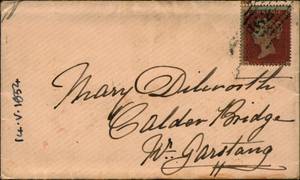 Mary Dilworth
Calder Bridge
Nr. Garstang
14·V·1854